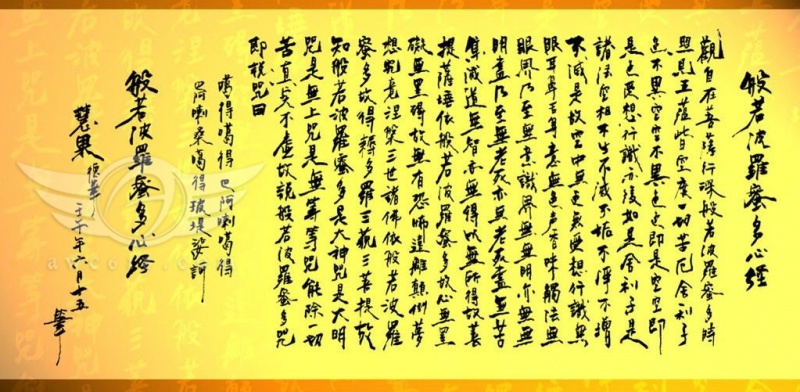 般若波羅蜜多心經
觀自在菩薩行深般若波羅蜜多時
照見五蘊皆空度一切苦厄舍利子
色不異空空不異色色即是空空即
是色受想行識亦復如是舍利子是
諸法空相不生不滅不垢不淨不增
不減是故空中無色無受想行識無
眼耳鼻舌身意無色聲香味觸法無
眼界乃至無意識界無無明亦無無
明盡乃至無老死亦無老死盡無苦
集滅道無智亦無得以無所得故菩
提薩埵依般若波羅蜜多故心無罣
礙無罣碍故無有恐怖遠離顛倒夢
想究竟涅槃三世諸佛依般若波羅
蜜多故得耨多羅三藐三菩提故
知般若波羅蜜多是大神咒是大明
咒是無上咒是無等等咒能除一切
苦真實不虛故說般若波羅蜜多咒
即說咒曰
噶得噶得 巴阿喇噶得
巴阿喇桑噶得 玻堤娑訶
般若波羅蜜多心經
慧果
壬午年六月十五